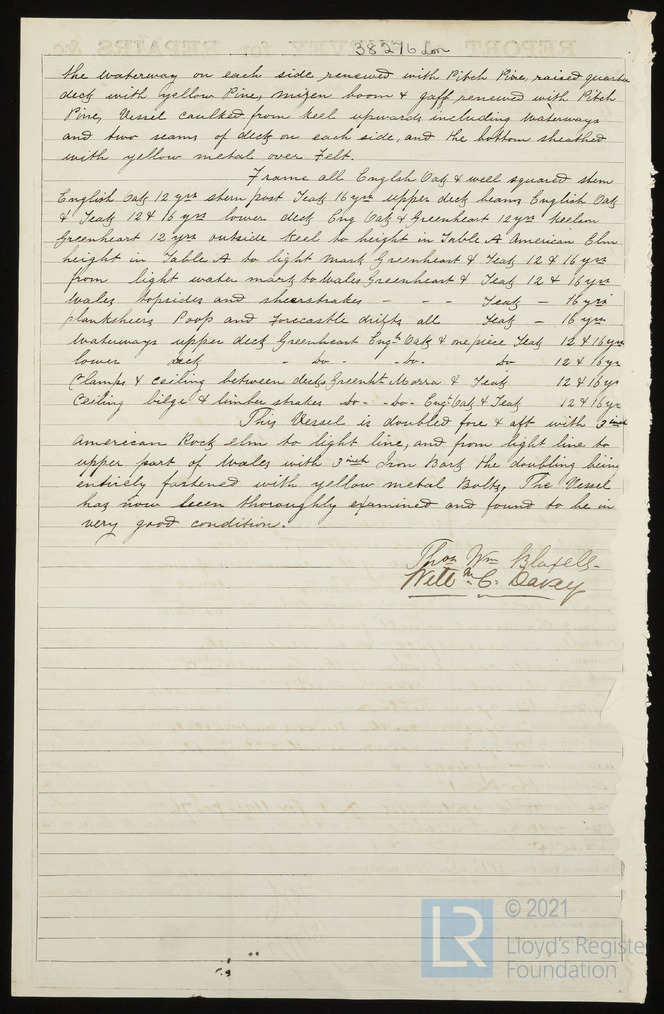 38276 Lon
the waterway on each side renewed with Pitch Pine, raised quarter
deck with yellow Pine, mizen boom & gaff renewed with Pitch
Pine, Vessel caulked from keel upwards including waterways
and two seams of deck on each side, and the bottom sheathed
with yellow metal over Felt.
Frame all English Oak & well squared stem
English Oak 12 yrs stern post Teak 16 yrs upper deck beams English Oak
& Teak 12 & 16 yrs lower deck Eng Oak & Greenheart 12 yrs keelson
Greenheart 12 yrs outside keel to height in Table A American Elm
height in Table A to light mark Greenheart & Teak 12 & 16 yrs
from light water mark to Wales Greenheart & Teak 12 & 16 yrs
Wales topsides and sheerstrakes - - - Teak - 16 yrs
plankshears Poop and Forecastle drifts all Teak - 16 yrs
Waterways upper deck Greenheart Engh Oak & one piece Teak 12 & 16 yrs
lower deck - do - - do - do 12 & 16 yrs
Clamps & ceiling between decks Greenht Morra & Teak 12 & 16 yrs
Ceiling bilge & limber strakes do - do - Engh Oak & Teak 12 & 16 yrs
This Vessel is doubled fore & aft with 3 inch
American Rock elm to light line, and from light line to
upper part of Wales with 3 inch Iron Bark the doubling being
entirely fastened with yellow metal Bolts, The Vessel
has now been thoroughly examined and found to be in
very good condition.
Thos Wm Blaxell
Will m C. Davey
LR
© 2021
Lloyd's Register
Foundation